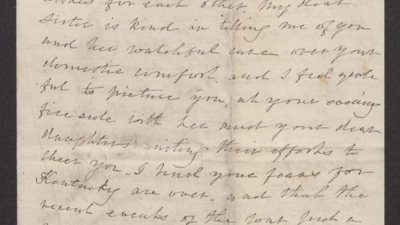 for each other. My dear
sister is kind in telling me of you
and her watchful care over your
domestic comfort, and I feel grate
ful to picture you, at your
fire side with her and your dear
daughters uniting their efforts to
cheer you. I trust your fears for
Kentucky are over. and that the
recent events of the war